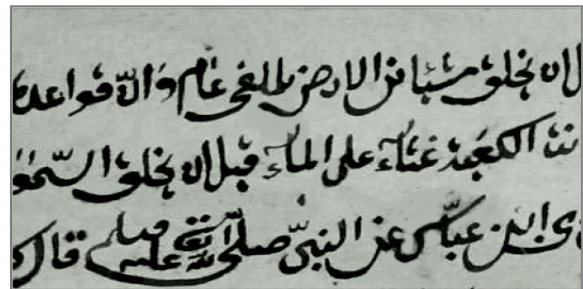 ل ان يخلق شيئا من الارض بالفى عام وان قواعده
نت الكعبة غثاء على الماء قبل ان يخلق السموا
ى ابن عباس عن النبى صلى الله عليه وسلم قال